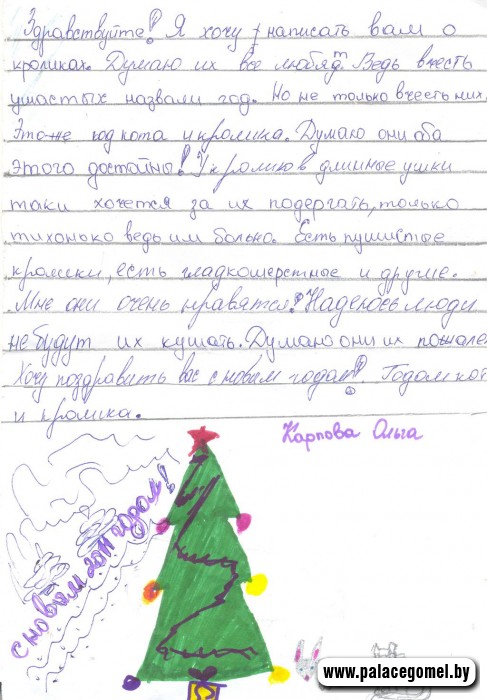 Здравствуйте! Я хочу написать вам о
кроликах. Думаю их все любят. Ведь вчесть
ушастых назвали год. Но не только вчесть них.
Это же год кота и кролика. Думаю они оба
этого достойны! У кроликов длинные ушки
таки хочется за их подергать, только
тихонько ведь им больно. Есть пушистые
кролики, есть гладкошерстные и другие.
Мне они очень нравятся! Надеюсь люди
не будут их кушать. Думаю они их пожале
Хочу поздравить вас с новым годом! Годом кот
и кролика.
Карпова Ольга
с новым 2011 годом!
www.palacegomel.by